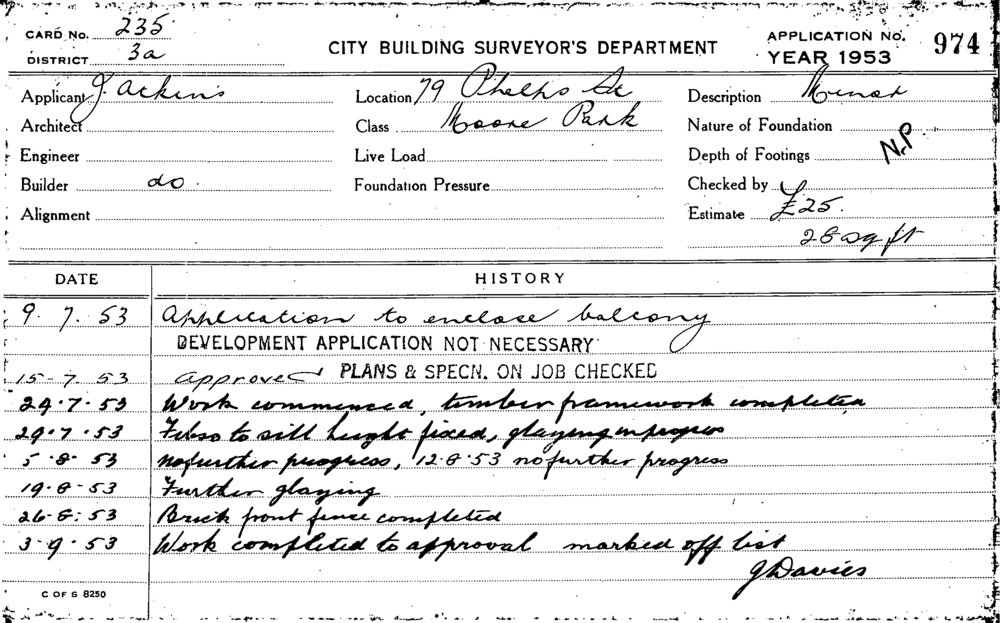 CARD No. 235
DISTRICT 3a
CITY BUILDING SURVEYOR'S DEPARTMENT
APPLICATION No. 974
YEAR 1953
Applicant J. Ackins Location 79 Phelps St Description Minor
Architect Class Moore Park Nature of Foundation
Engineer Live Load Depth of Footings N.P
Builder do. Foundation Pressure Checked by
Alignment Estimate £25.
28 sq ft
DATE HISTORY
9. 7. 53 Application to enclose balcony
DEVELOPMENT APPLICATION NOT NECESSARY
15-7. 53 approved PLANS & SPECN. ON JOB CHECKED
Work commenced, timber framework completed
29.7.53 Fibro to sill height fixed, glazing in progress
5.8.53 no further progress, 12.8.53 no further progress
19.8-53 Further glazing
26-8:53 Brick front fence completed
3-9.53 Work completed to approval marked off list
J Davies
C OF S 8250